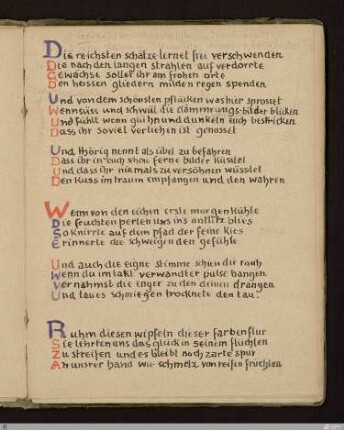 Die reichsten schätze lernet frei verschwenden
Die nach den langen strahlen auf verdorrte
Gewächse sollet ihr am frohen orte
Den heissen gliedern milden regen spenden
Und von dem schönsten pflücken was hier sprosset
Wenn süss und schwül die dämmrungs-bilder blicken
Und fühlt wenn gluhn und dunkeln euch bestricken
Dass ihr soviel verliehen ist genosset
Und thörig nennt als übel zu befahren
Dass ihr in euch schon ferne bilder küsstet
Und dass ihr niemals zu versöhnen wüsstet
Den kuss im traum empfangen und den wahren
Wenn von den eichen erste morgenkühle
Die feuchten perlen uns ins antlitz blies
So knirrte auf dem pfad der feine kies
Erinnerte die schweigenden gefühle
Und auch die eigne stimme schien dir rauh
Wenn du im takt verwandter pulse bangen
Vernahmst die enger zu den deinen drangen
Und laues schmiegen trocknete den tau.
Ruhm diesen wipfeln dieser farbenflur
Sie lehrten uns das glück in seinem flüchten
Zu streifen und es bleibt noch zarte spur
An unsrer hand wie schmelz von reifen früchten